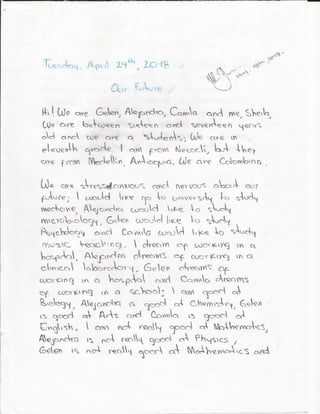 Tuesday, April 24th, 2018
Our Future
Hi! We are Gelen, Alejandra, Camila and me, Sheila,
We are between sixteen and seventeen years
old and we are a students; We are in
eleventh grade. I am from Necoclí, but they
are from Medellín, Antioquia, We are Colombians.
We are stressed, anxious and nervous about our
future; I would like go to university to study
medicine, Alejandra would like to study
microbiology, Gelen would like to study
Psychology and Camila would like to study
music teaching. I dream of working in a
hospital, Alejandra dreams of working in a
clinical laboratory, Gelen dreams of
working in a hospital and Camila dreams
of working in a school; I am good at
Biology, Alejandra is good at Chemistry, Gelen
is good at Arts and Camila is good at
English. I am not really good at Mathematics,
Alejandra is not really good at Physics,
Gelen is not really good at Mathematics and